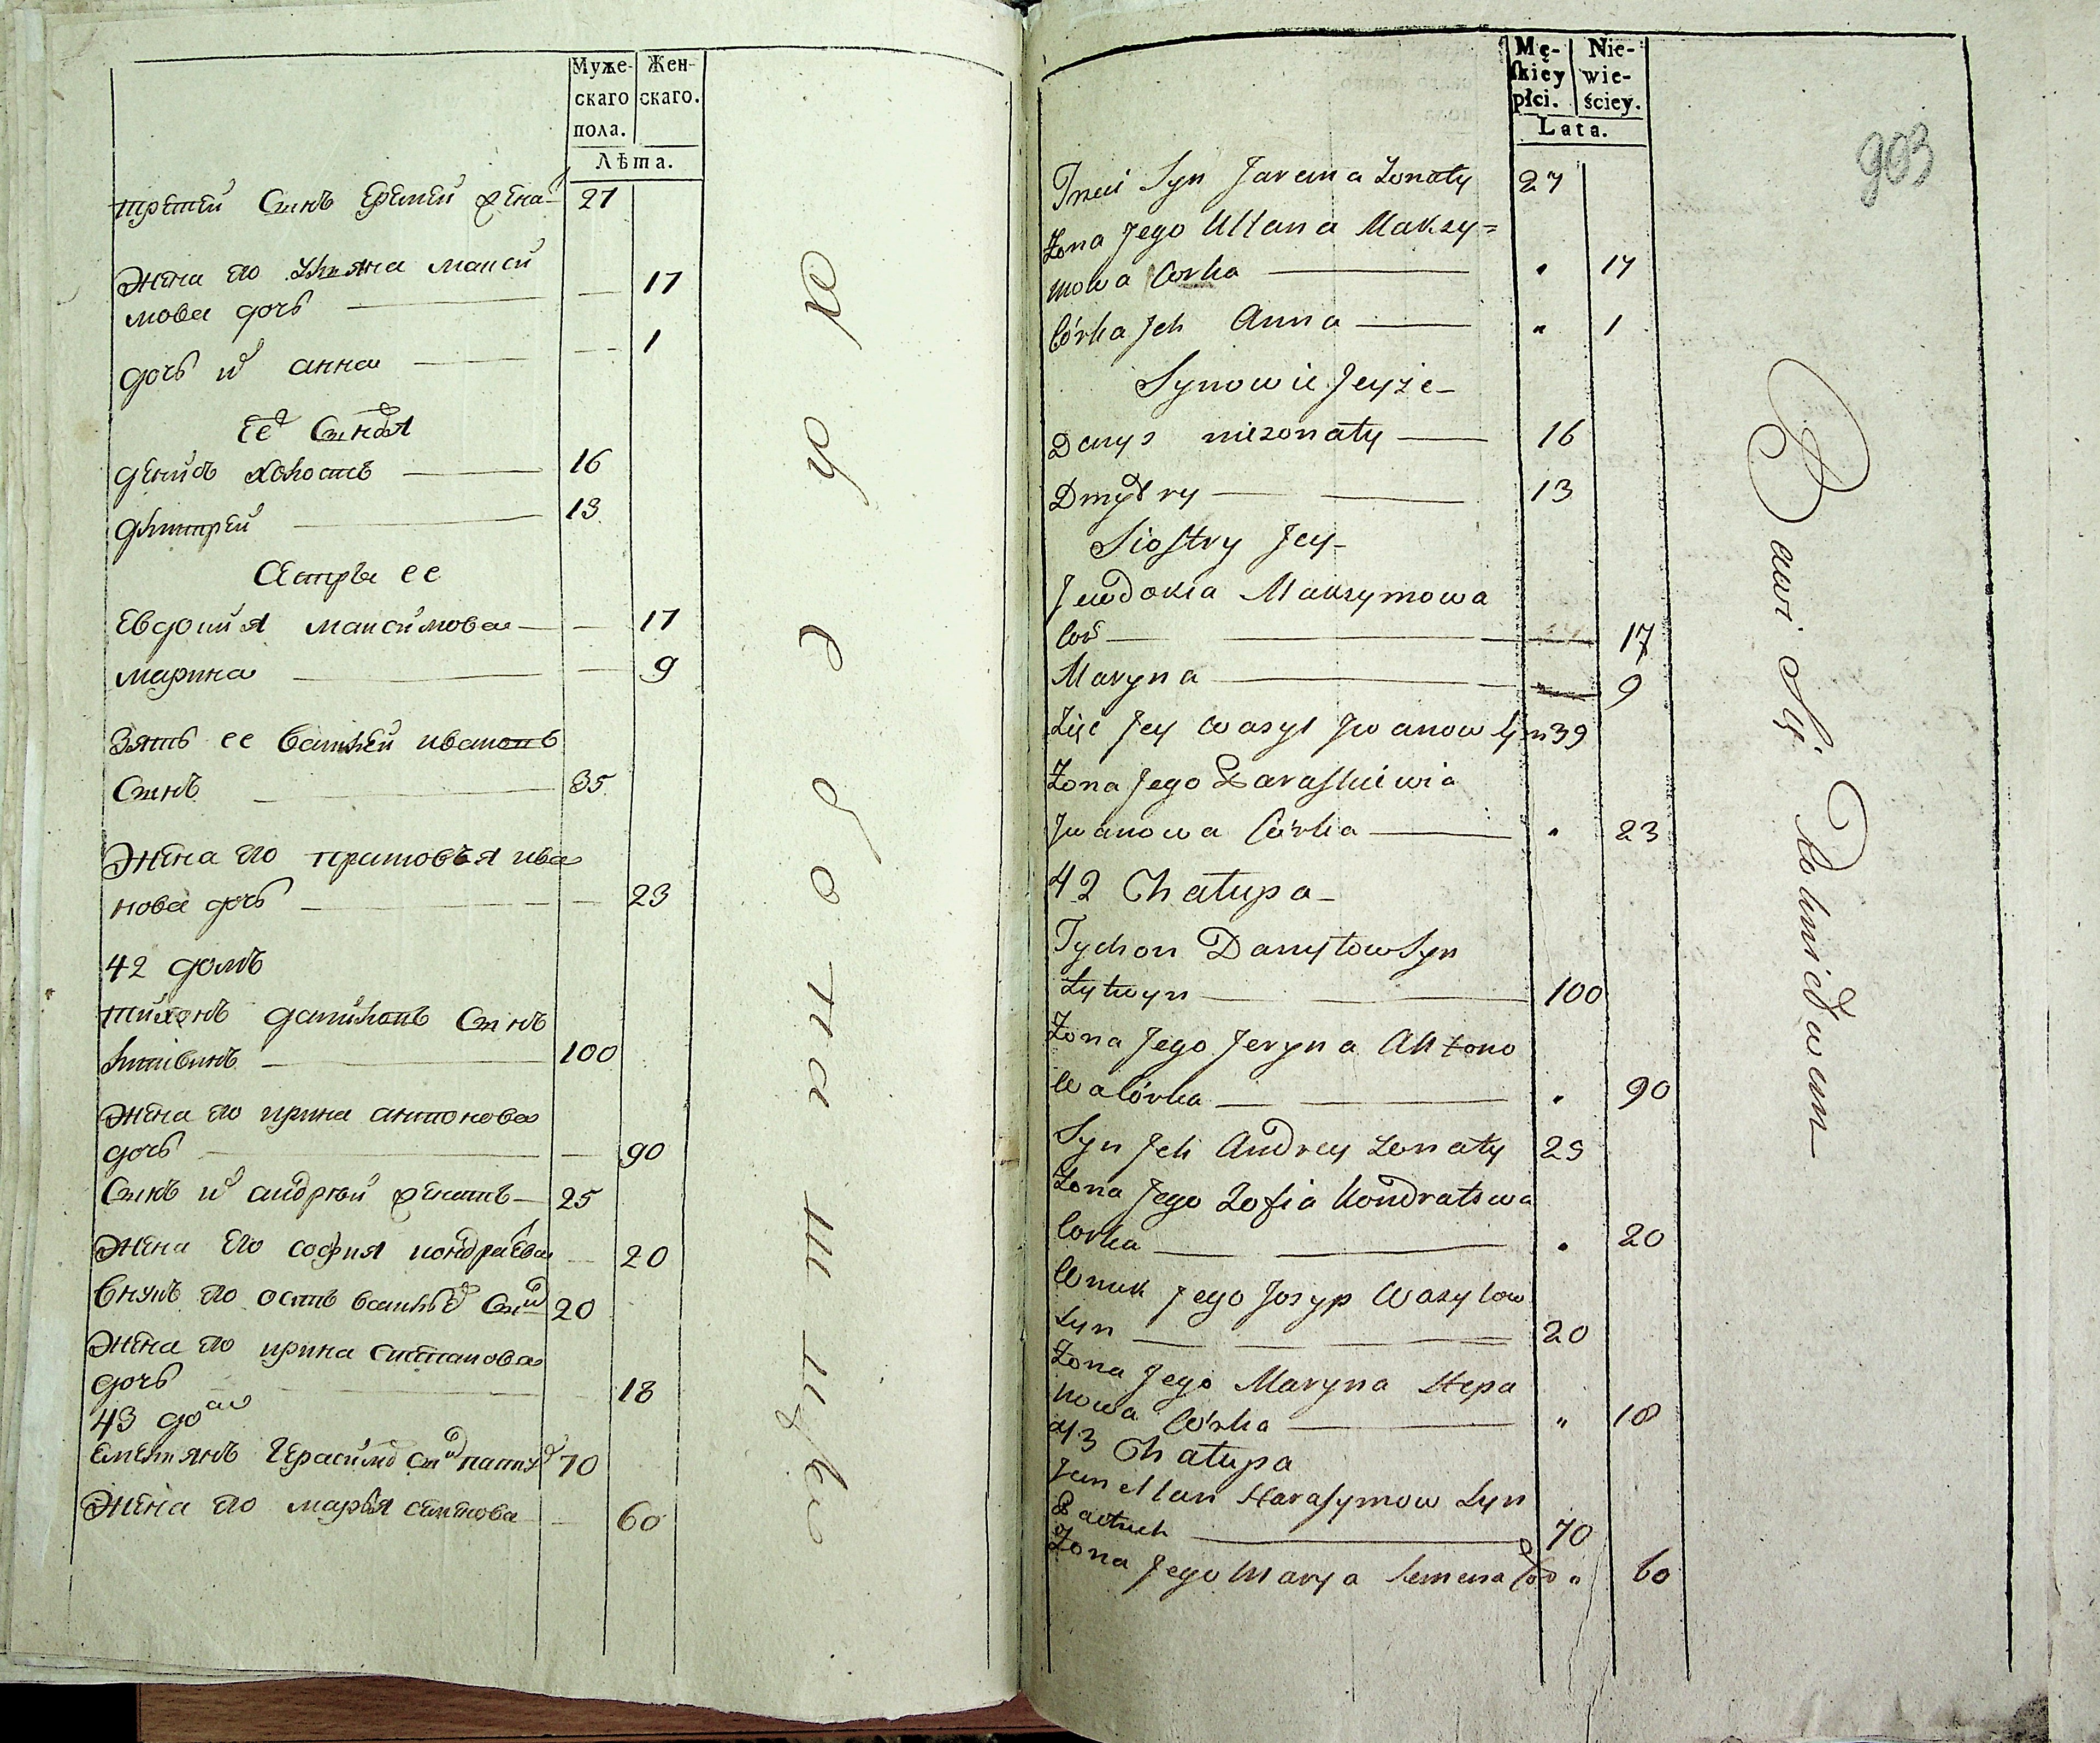 Муже-
скаго
пола.
Жен-
скаго.
Лѣта.
третей Синъ Еремей жена 27
Жена его Ульяна макси
мова дочь 17
дочь их анна 1
Ее Синовя
денисъ холостъ 16
дмитрей 13
Сестры ее
Евдокия максимова 17
марина 9
Зять ее Василей ивановъ
Синъ 35
Жена его прасковья ива
нова дочь 23
42 домъ
тихонъ даниловъ Синъ
литвинъ 100
Жена его ирина антонова
дочь 90
Синъ их андрей женатъ 25
Жена его софия кондратева 20
Внукъ его осипъ васильев Син 20
Жена его ирина степанова
дочь 18
43 дом
Емельянъ Герасимов Син 70
Жена его марья семенова 60
Mę-
ſkiey
płci.
Nie-
wie-
ściey.
Lata.
903
Trzeci Syn Jarema Zonaty 27
Zona Jego Ullana Maksy=
mowa Corka " 17
Córka Jch Anna " 1
Synowie Jeyze
Denys niezonaty 16
Dmytry 13
Siostry Jey
Jewdokia Maksymowa
Cor 17
Maryna 9
Zięć Jey Wasyl Jwanow Syn 39
Zona Jego Paraskiewia
Jwanowa Córka " 23
42 Chałupa
Tychon Danyłow Syn
Łytwyn 100
Zona Jego Jeryna Antono
wa Córka " 90
Syn Jch Andrey Zonaty 25
Zona Jego Zofia Kondratowa
Corka " 20
Wnuk Jego Josyp Wasylow
Syn 20
Zona Jego Maryna Stepa
nowa Córka " 18
43 Chałupa
Jemellan Harasymow Syn
70
Zona Jego Marya Semena Cor " 60